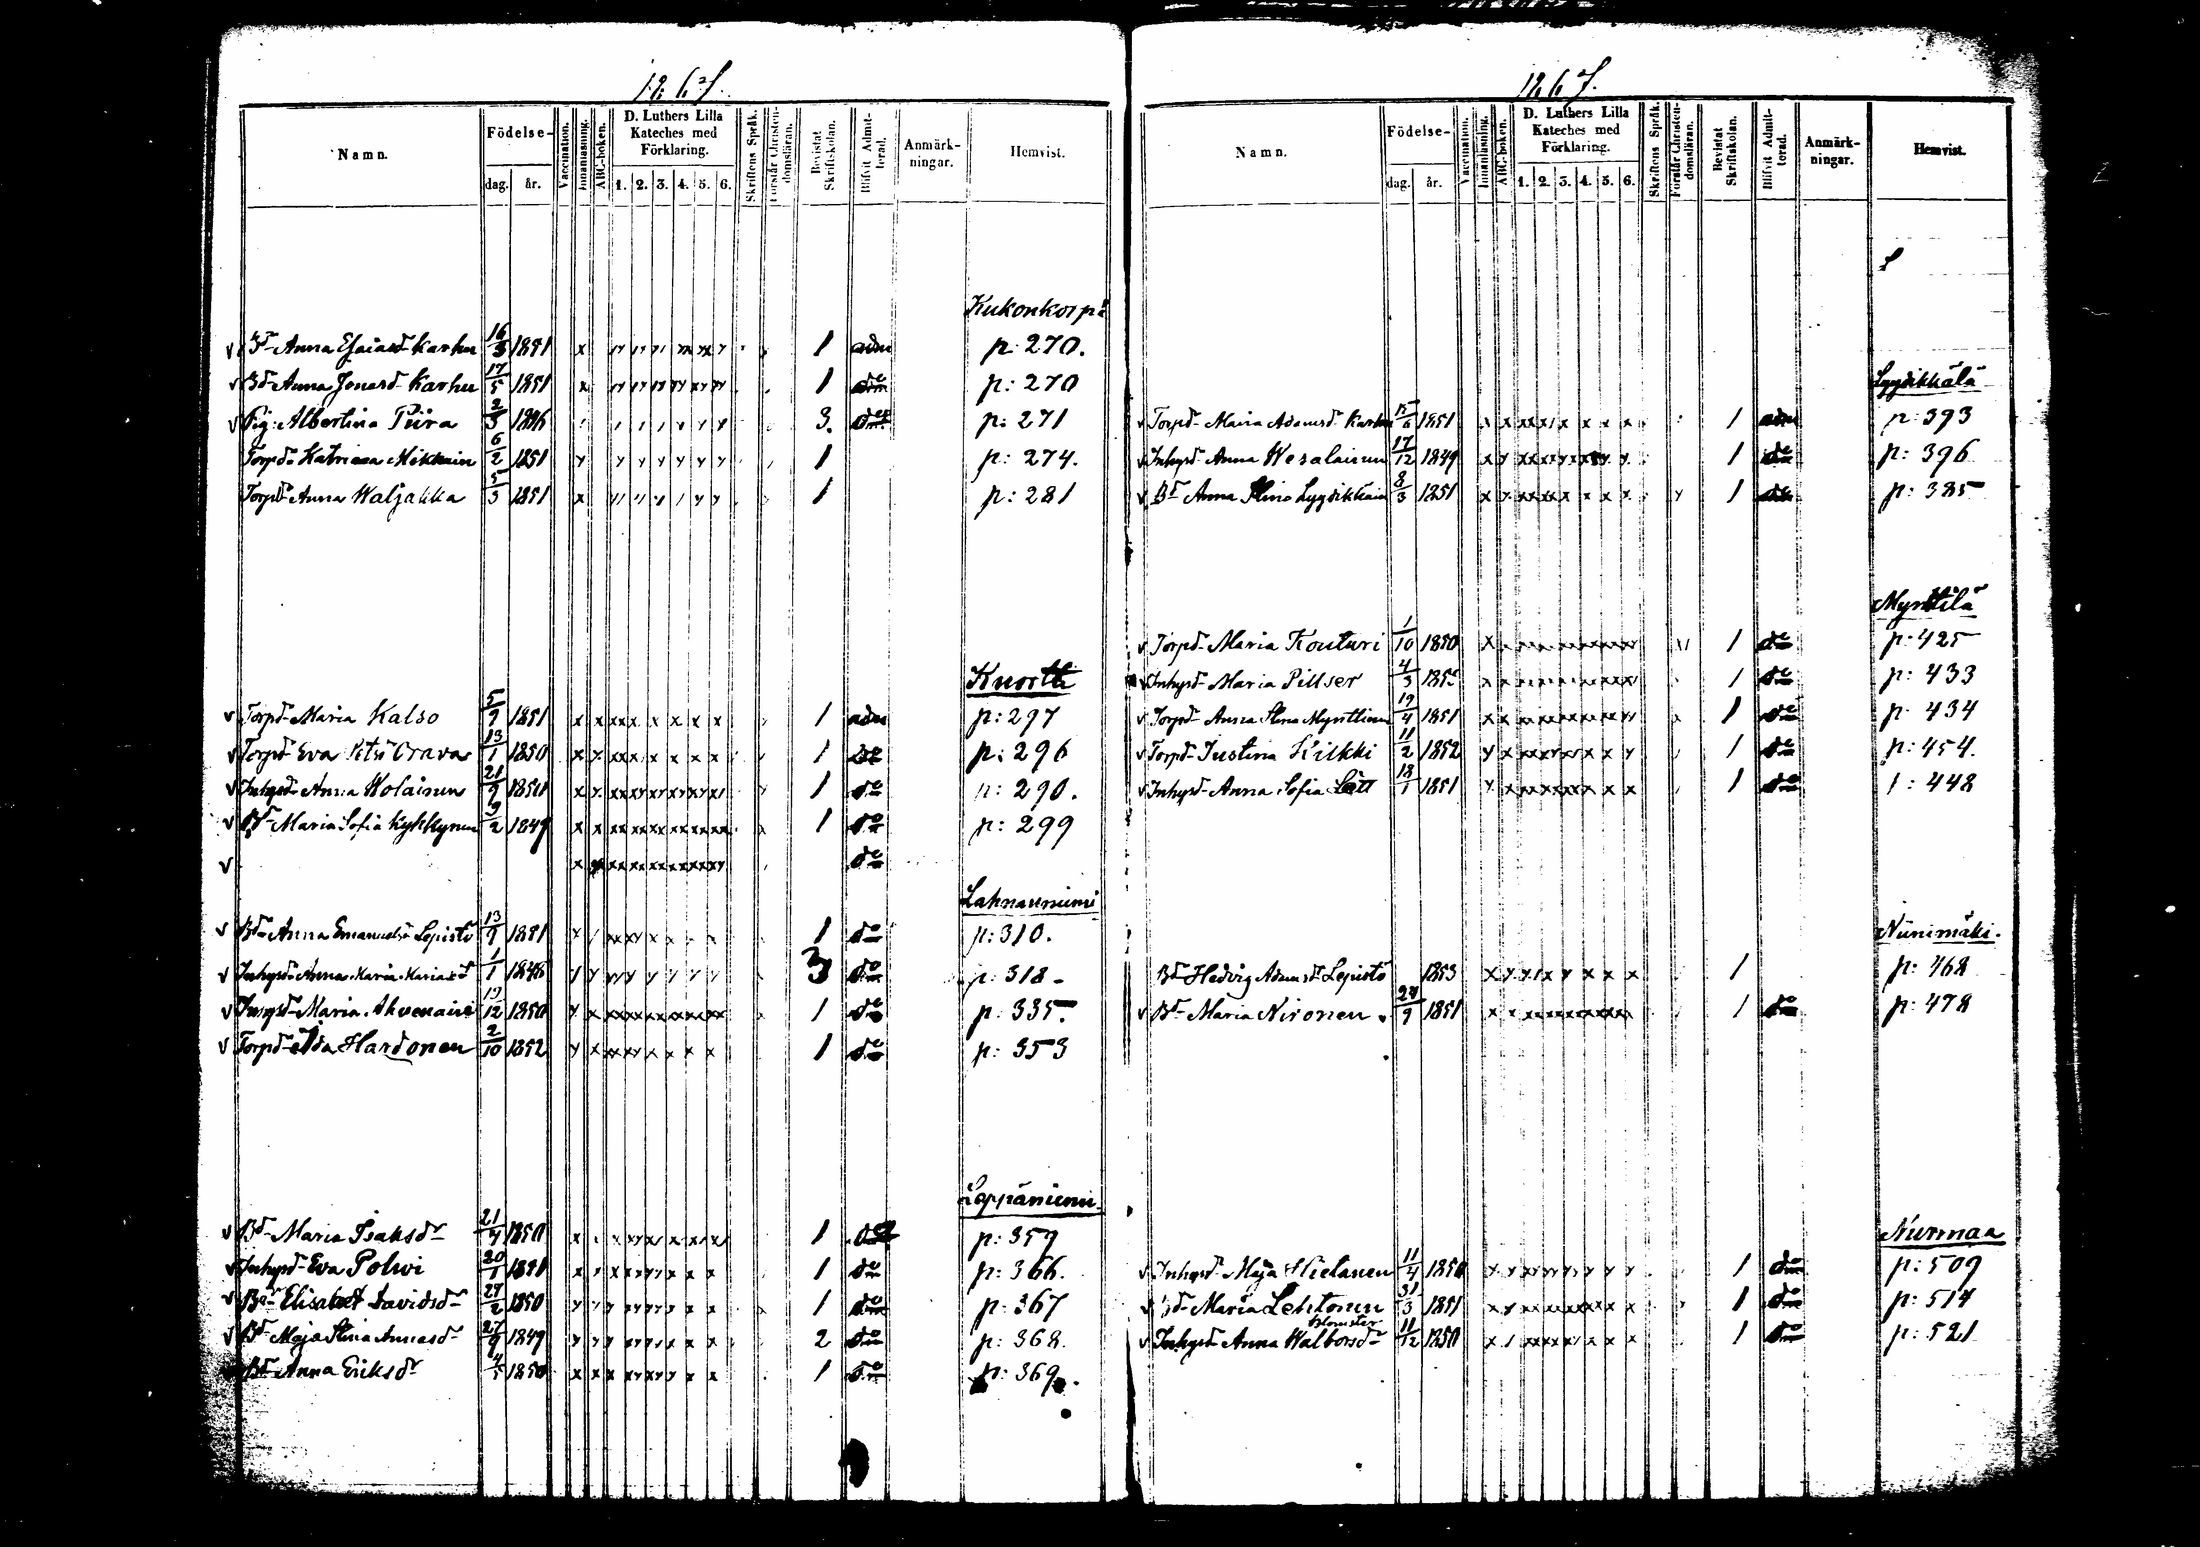 1867.
Namn. Födelse- dag. år. Vaccination. Innanläsning. ABC-boken. D. Luthers Lilla Kateches med Förklaring. 1. 2. 3. 4. 5. 6. Skriftens Språk. Förstår Christendomsläran. Bevistat Skriftskolan. Blifvit Admitterad. Anmärkningar. Hemvist.
Kukonkorpi
v Bd Anna Esaiasd Karhu 16/3 1851 1 adm p: 270.
v Bd Anna Jonasd Karhu 17/5 1851 1 do p: 270
v Pig: Albertina Piira 2/3 1846 3. do p: 271
Torpd Katrina Mikkain 6/2 1851 1 p: 274.
Torpd Anna Waljakka 5/3 1851 1 p: 281
Knorth
v Torpd Maria Kalso 5/9 1851 1 adm p: 297
v Torpd Eva Oravas 13/1 1850 1 do p: 296
v Inhysd Anna Wolainen 21/9 1850 1 do p: 290.
v Bd Maria Sofia 9/2 1849 1 do p: 299
v do
Lahnaniemi
v Bd Anna Emanuelsd Lepistö 13/9 1851 1 do p: 310.
v Inhysd Anna Maria Mariasd 1/1 1846 3 do p: 318
v Inhysd Maria Ahvenaine 19/12 1850 1 do p: 335.
v Torpd Ida Hardonen 2/10 1852 1 do p: 353
Leppäniemi
v Bd Maria Isaksdr 21/4 1850 1 do p: 359
v Inhysd Eva Polwi 20/1 1851 1 do p: 366.
v Bd Elisabet Davidsdr 27/2 1850 1 do p: 367
v Bd Maja Stina Annasdr 27/9 1849 2 do p: 368.
Bd Anna Eriksdr 4/5 1850 1 do p: 369.
1867.
Namn. Födelse- dag. år. Vaccination. Innanläsning. ABC-boken. D. Luthers Lilla Kateches med Förklaring. 1. 2. 3. 4. 5. 6. Skriftens Språk. Förstår Christendomsläran. Bevistat Skriftskolan. Blifvit Admitterad. Anmärkningar. Hemvist.
Lyydikkälä
v Torpd Maria Adamsd Karhu 15/6 1851 1 adm p: 393
v Inhysd Anna Wesalainen 17/12 1849 1 do p: 396
v Bd Anna Stina Lyydikkäin 8/3 1851 1 do p: 385
Mynttilä
v Torpd Maria Kouturi 1/10 1850 1 do p: 425
Inhysd Maria Pillser 4/3 1 do p: 433
v Torpd Anna Stina Mynttinen 19/4 1851 1 do p: 434
v Torpd Justina Kilkki 11/2 1852 1 do p: 454.
v Inhysd Anna Sofia Lätt 18/1 1851 1 do : 448
Niinimäki.
Bd Hedvig Adamsd Lepistö 1853 1 p: 468
v Bd Maria Nironen 27/9 1851 1 do p: 478
Nurmaa
v Inhysd Maja Hietanen 11/4 1850 1 do p: 509
v Bd Maria Lehtonen 31/3 1851 1 do p: 514
Blomster
v Inhysd Anna Walborsdr 11/12 1850 1 do p: 521